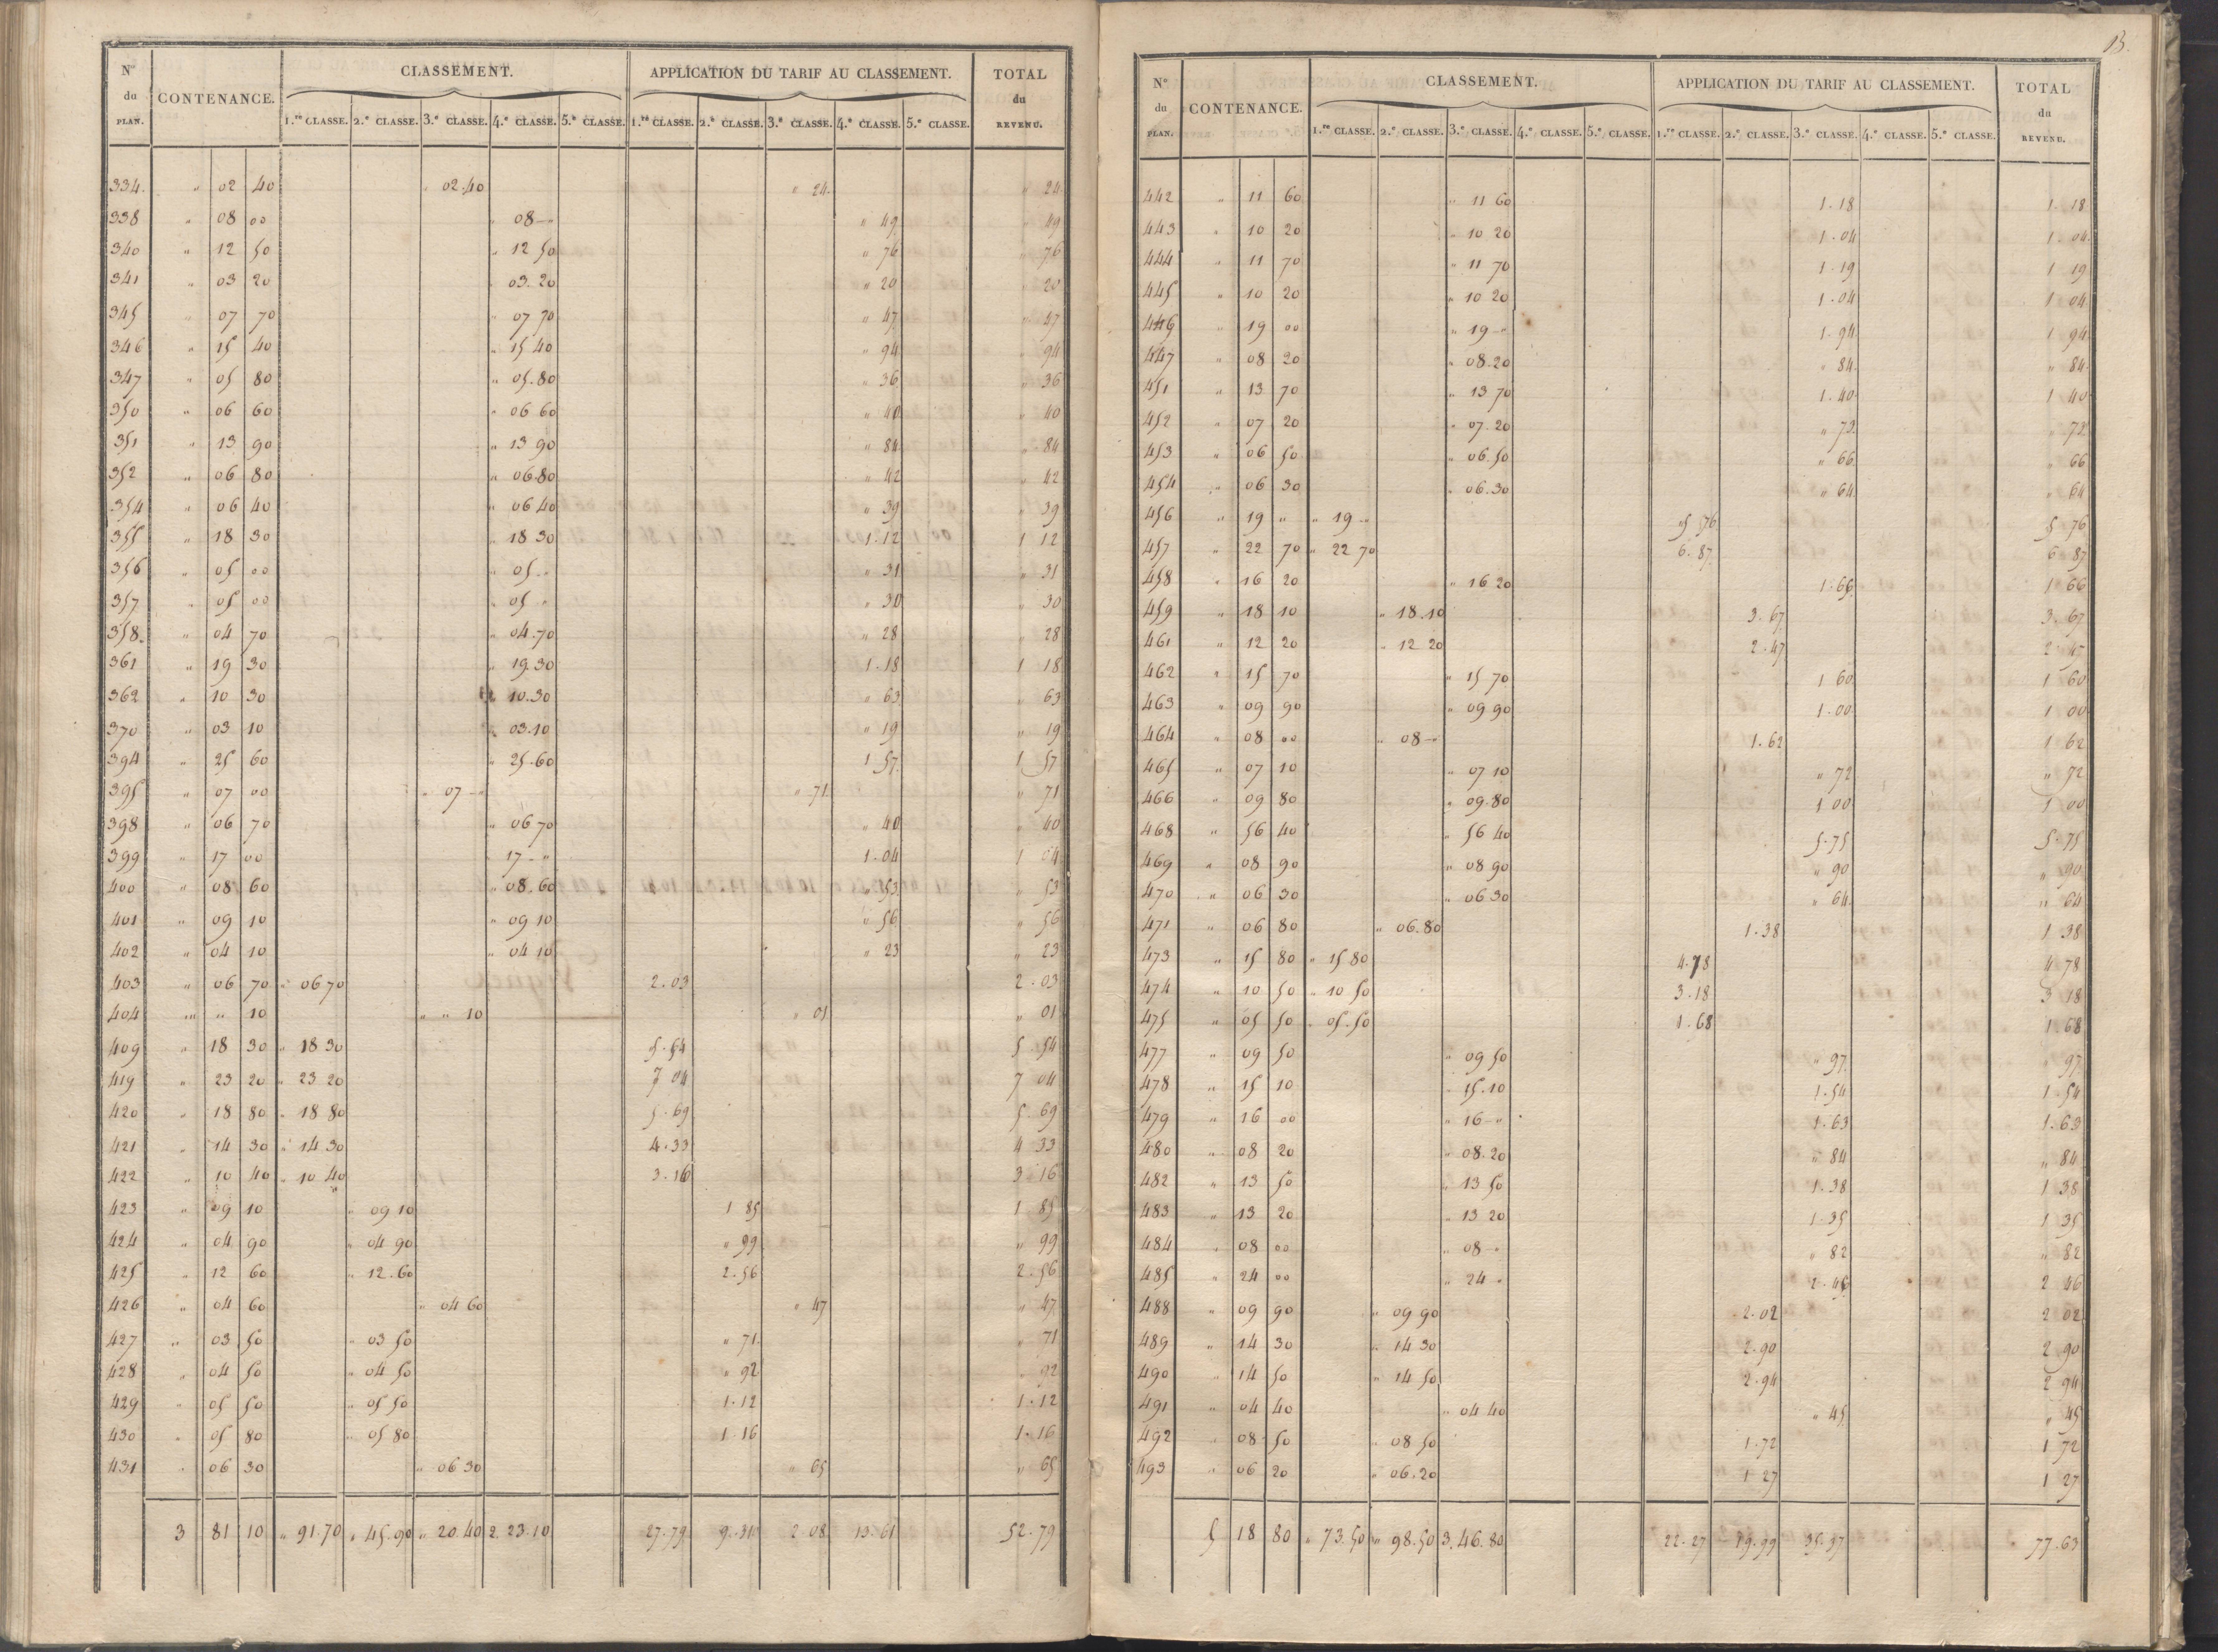 N.o du PLAN. CONTENANCE. CLASSEMENT. APPLICATION DU TARIF AU CLASSEMENT. TOTAL du REVENU.
1.re CLASSE. 2.e CLASSE. 3.e CLASSE. 4.e CLASSE. 5.e CLASSE. 1.re CLASSE. 2.e CLASSE. 3.e CLASSE. 4.e CLASSE. 5.e CLASSE.
334. " 02 40 " 02.40 " 24. " 24.
338 " 08 00 " 08-" " 49. " 49
340 " 12 50 " 12 50 " 76 " 76
341 " 03 20 " 03.20 " 20 " 20
345 " 07 70 " 07 70 " 47 " 47
346 " 15 40 " 15 40 " 94 " 94
347 " 05 80 " 05.80 " 36 " 36
350 " 06 60 " 06 60 " 40 " 40
351 " 13 90 " 13 90 " 84 " 84
352 " 06 80 " 06.80 " 42 " 42
354 " 06 40 " 06 40 " 39 " 39
355 " 18 30 " 18 30 1.12 1 12
356 " 05 00 " 05-" " 31 " 31
357 " 05 00 " 05 " " 30 " 30
358. " 04 70 " 04.70 " 28 " 28
361 " 19 30 " 19.30 1.18 1 18
362 " 10 30 " 10.30 " 63 " 63
370 " 03 10 " 03.10 " 19 " 19
394 " 25 60 " 25.60 1 57 1 57
395 " 07 00 " 07-" " 71 " 71
398 " 06 70 " 06 70 " 40 " 40
399 " 17 00 " 17-" 1.04 1 04
400 " 08 60 " 08.60 " 53 " 53
401 " 09 10 " 09 10 " 56 " 56
402 " 04 10 " 04 10 " 23 " 23
403 " 06 70 " 06 70 2.03 2.03
404 " " 10 " " 10 " 01 " 01
409 " 18 30 " 18 30 5.54 5 54
419 " 23 20 " 23 20 7 04 7 04
420 " 18 80 " 18 80 5.69 5.69
421 " 14 30 " 14 30 4.33 4 33
422 " 10 40 " 10 40 3.16 3.16
423 " 09 10 " 09 10 1 85 1 85
424 " 04 90 " 04 90 " 99 " 99
425 " 12 60 " 12.60 2.56 2.56
426 " 04 60 " 04 60 " 47 " 47
427 " 03 50 " 03 50 " 71. " 71
428 " 04 50 " 04 50 " 92 " 92
429 " 05 50 " 05 50 1.12 1.12
430 " 05 80 " 05 80 1.16 1.16
431 " 06 30 " 06 30 " 65 " 65
3 81 10 " 91.70 " 45.90 " 20.40 2. 23.10 27.79 9.31 2 08 13.61 52.79
13.
N.o du PLAN. CONTENANCE. CLASSEMENT. APPLICATION DU TARIF AU CLASSEMENT. TOTAL du REVENU.
1.re CLASSE. 2.e CLASSE. 3.e CLASSE. 4.e CLASSE. 5.e CLASSE. 1.re CLASSE. 2.e CLASSE. 3.e CLASSE. 4.e CLASSE. 5.e CLASSE.
442 " 11 60 " 11 60 1.18 1.18
443 " 10 20 " 10 20 1.04 1.04
444 " 11 70 " 11 70 1.19 1 19
445 " 10 20 " 10 20 1.04 1 04
446 " 19 00 " 19-" 1.94 1 94
447 " 08 20 " 08.20 " 84. " 84.
451 " 13 70 " 13 70 1.40 1 40
452 " 07 20 " 07.20 " 72 " 72
453 " 06 50 " 06.50 " 66 " 66
454 " 06 30 " 06.30 " 64 " 64
456 " 19 " " 19-" 5 76 5 76
457 " 22 70 " 22 70 6.87 6 87
458 " 16 20 " 16 20 1.66 1 66
459 " 18 10 " 18.10 3.67 3.67
461 " 12 20 " 12 20 2.47 2 47
462 " 15 70 " 15 70 1 60 1 60
463 " 09 90 " 09 90 1.00 1 00
464 " 08 00 " 08-" 1.62 1 62
465 " 07 10 " 07 10 " 72 " 72
466 " 09 80 " 09.80 1 00 1 00
468 " 56 40 " 56 40 5.75 5.75
469 " 08 90 " 08 90 " 90 " 90
470 " 06 30 " 06 30 " 64. " 64
471 " 06 80 " 06.80 1.38 1 38
473 " 15 80 " 15 80 4.78 4 78
474 " 10 50 " 10 50 3.18 3 18
475 " 05 50 " 05.50 1.68 1.68
477 " 09 50 " 09 50 " 97 " 97
478 " 15 10 " 15.10 1.54 1.54
479 " 16 00 " 16-" 1.63 1.63
480 " 08 20 " 08.20 " 84 " 84
482 " 13 50 " 13 50 1.38 1 38
483 " 13 20 " 13 20 1.35 1 35
484 " 08 00 " 08-" " 82 " 82
485 " 24 00 " 24 " 2.46 2 46
488 " 09 90 " 09 90 2.02 2 02
489 " 14 30 " 14 30 2.90 2 90
490 " 14 50 " 14 50 2.94 2 94
491 " 04 40 " 04 40 " 45 " 45
492 " 08 50 " 08 50 1.72 1 72
493 " 06 20 " 06.20 1 27 1 27
5 18 80 " 73.50 " 98.50 3.46.80 22.27 19.99 35.37 77.63